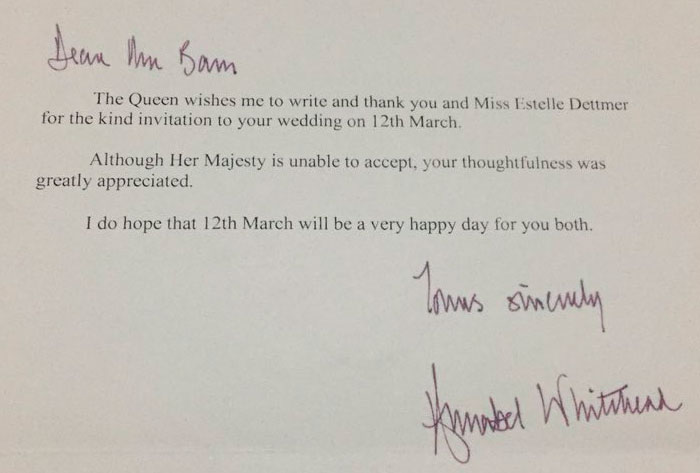 Dear Mr Bam
The Queen wishes me to write and thank you and Miss Estelle Dettmer
for the kind invitation to your wedding on 12th March.
Although Her Majesty is unable to accept, your thoughtfulness was
greatly appreciated.
I do hope that 12th March will be a very happy day for you both.
Yours sincerely
Annabel Whitehead